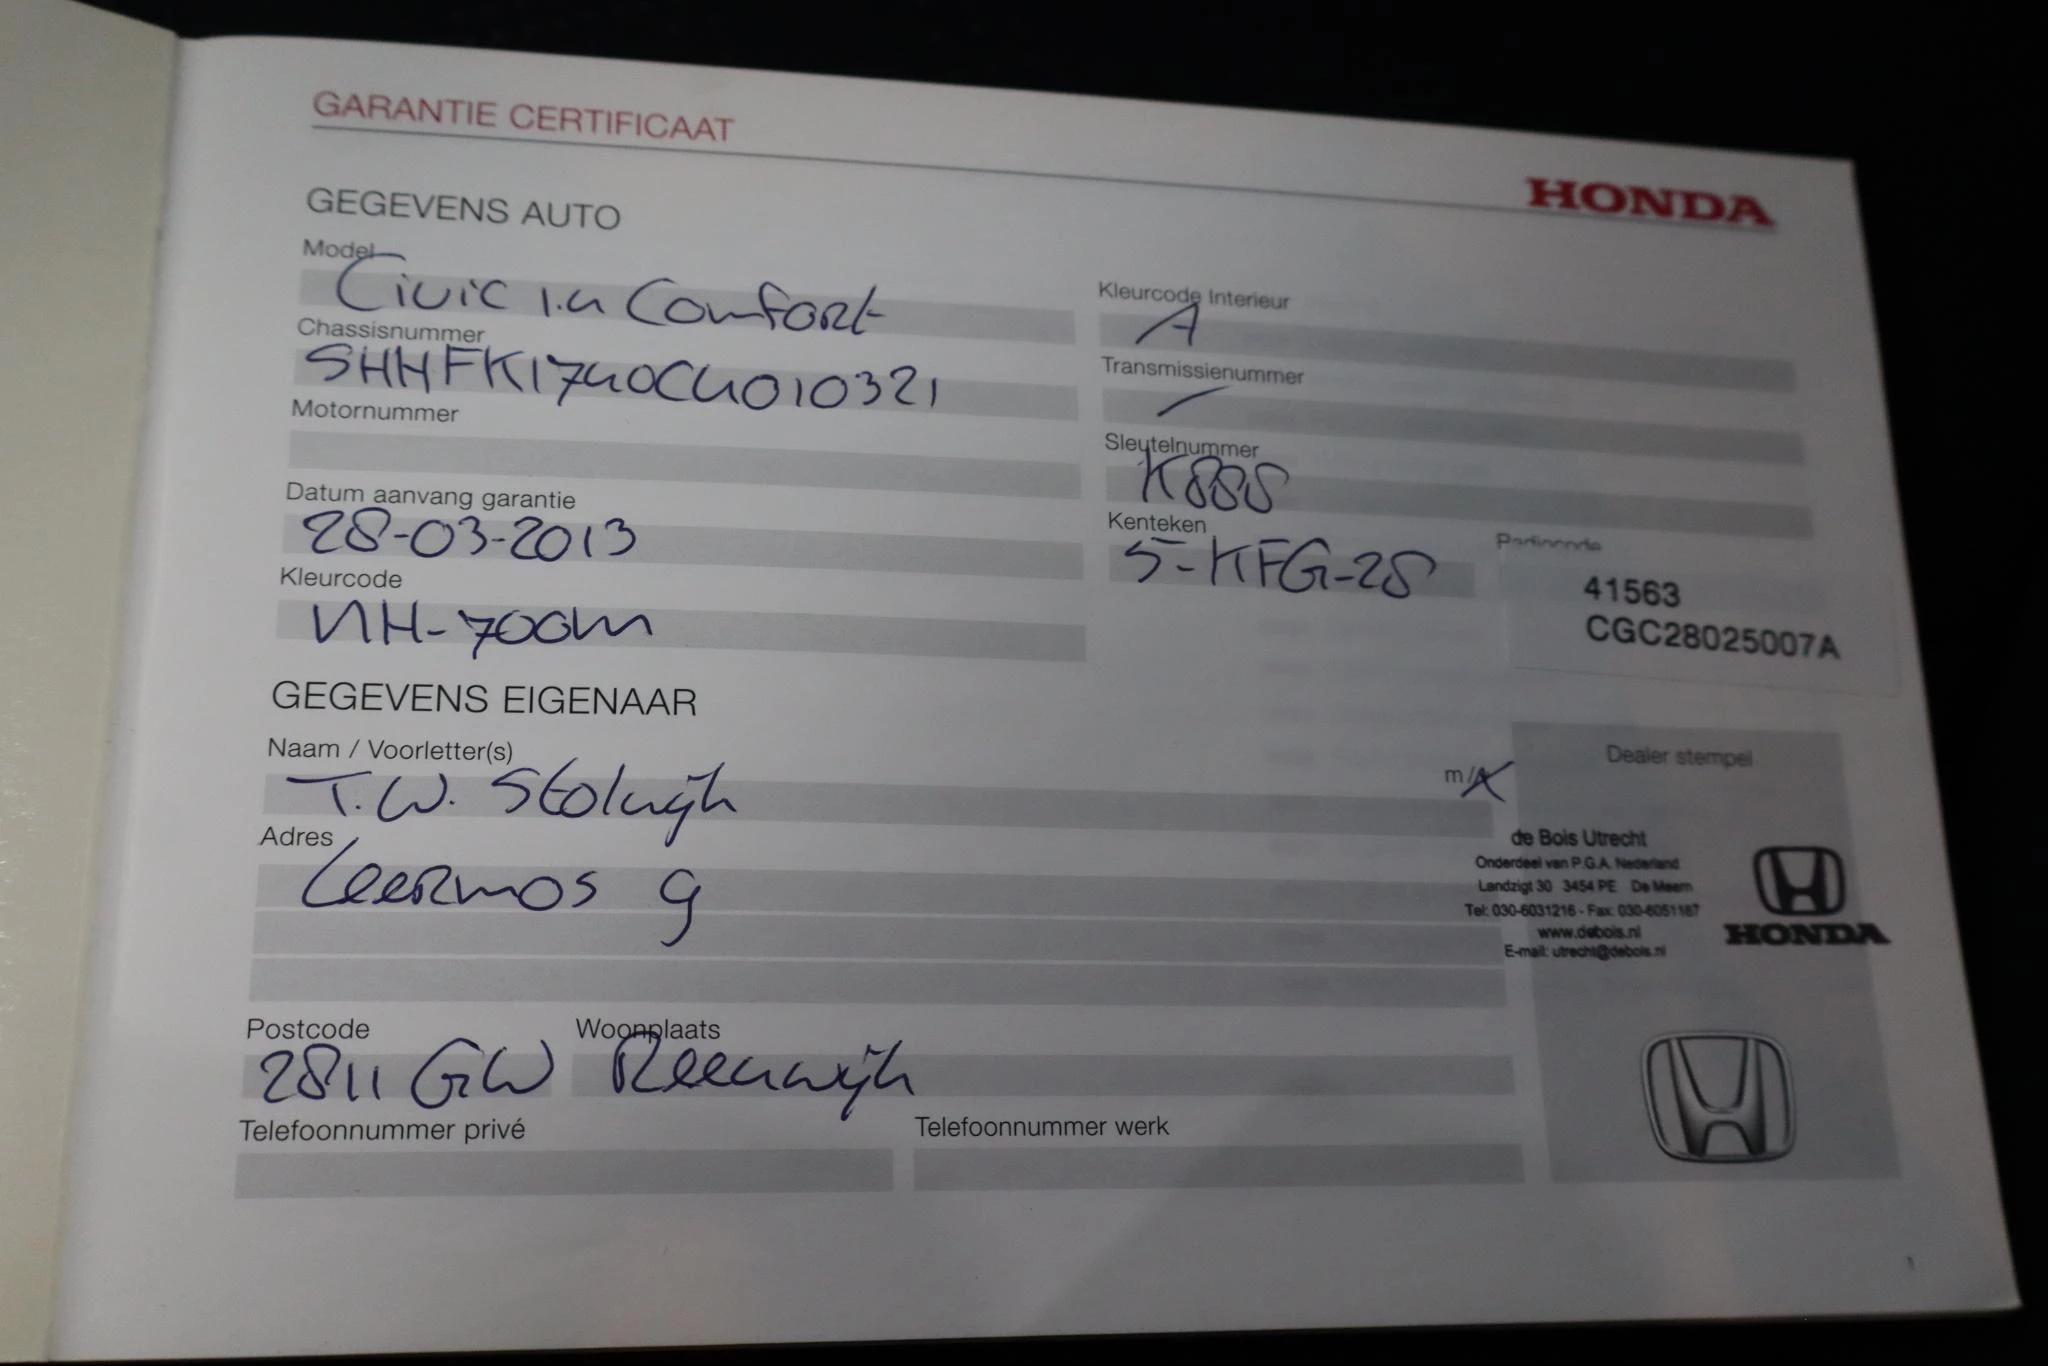 GARANTIE CERTIFICAAT
HONDA
GEGEVENS AUTO
Model
Civic 1.4 Comfort
Chassisnummer
SHHFK1740CU010321
Motornummer
Datum aanvang garantie
28-03-2013
Kleurcode
NH-700m
Kleurcode Interieur
A
Transmissienummer
Sleutelnummer
K888
Kenteken
5-KFG-28
Radiocode
41563
CGC28025007A
GEGEVENS EIGENAAR
Naam / Voorletter(s)
T.W. Stolwijk
m/
Adres
Leermos 9
Postcode
2811 GW
Woonplaats
Reeuwijk
Telefoonnummer privé
Telefoonnummer werk
Dealer stempel
de Bois Utrecht
Onderdeel van P.G.A. Nederland
Landzigt 30 3454 PE De Meern
Tel: 030-6031216 - Fax: 030-6051187
www.debois.nl
E-mail: utrecht@debois.nl
HONDA
1